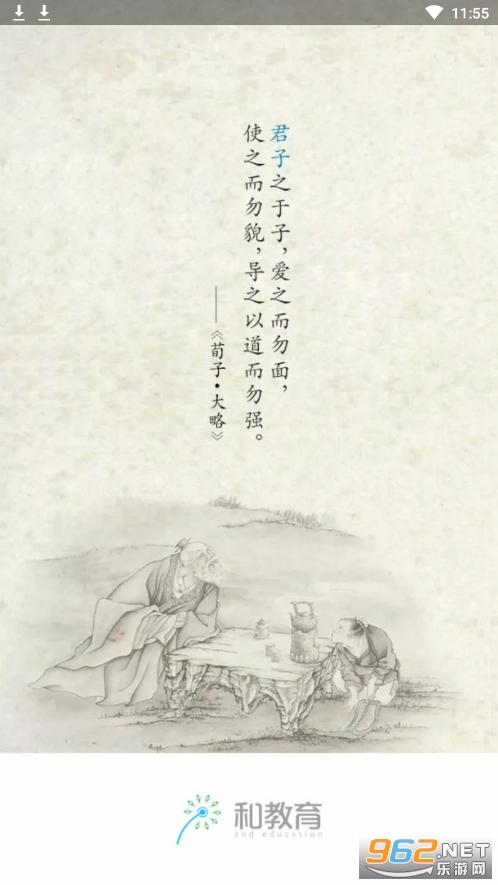 11:55
君子之于子，爱之而勿面，
使之而勿貌，导之以道而勿强。
——《荀子·大略》
和教育
and education
962.NET
乐游网